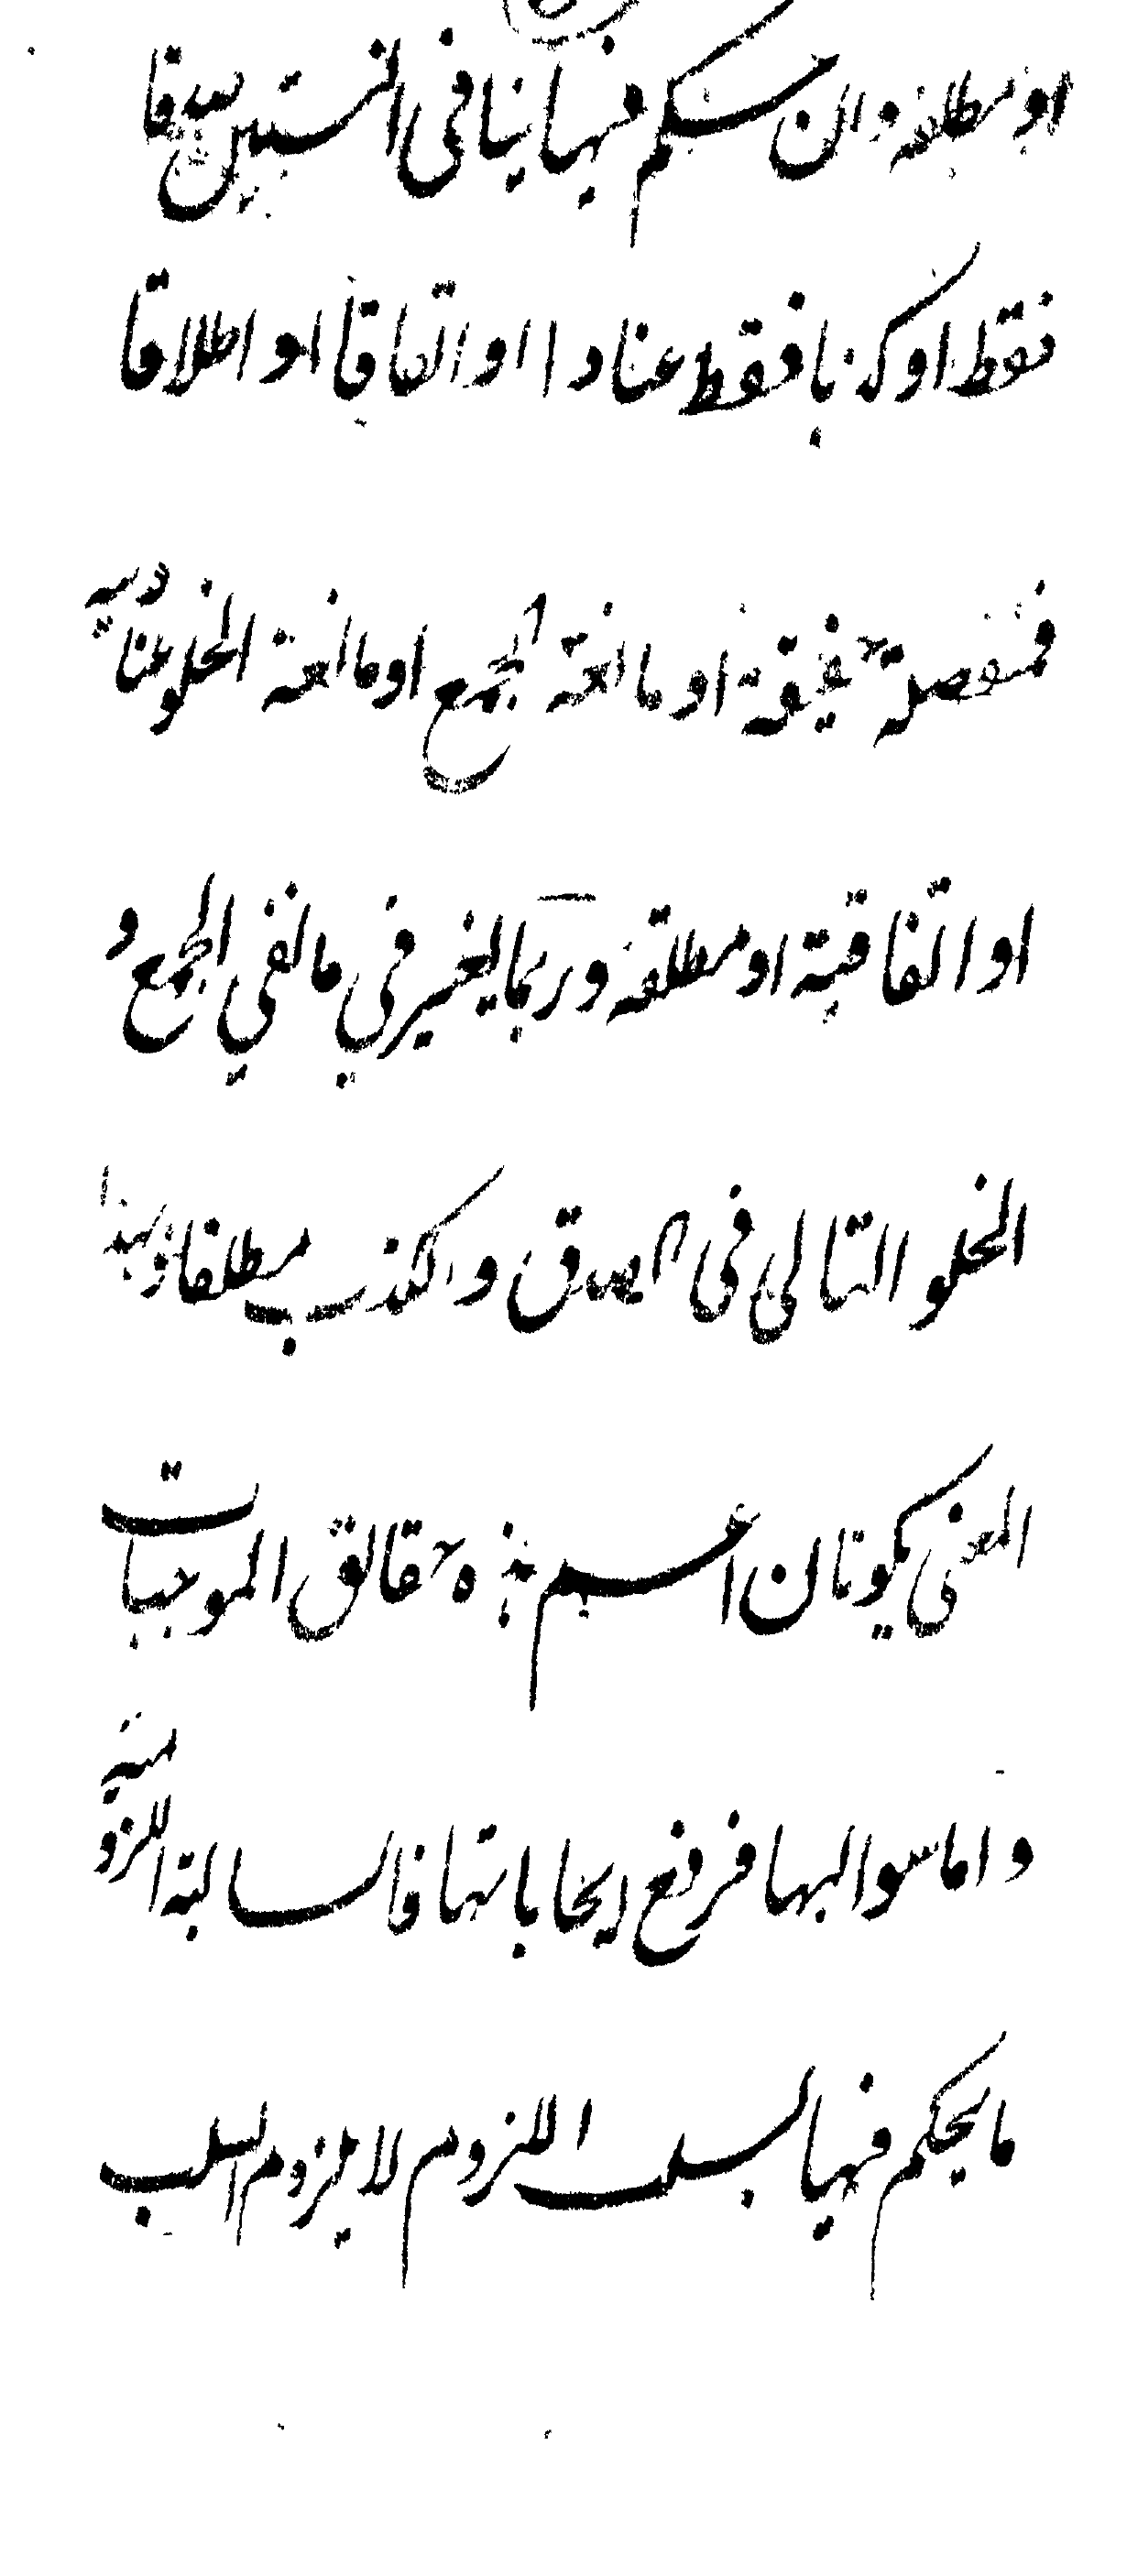 او مطلقة وان حكم فيها بتنافي النسبتين صدقا
فقط او كذبا فقط عنادا او اتفاقا او اطلاقا
فمنفصلة حقيقية او مانعة الجمع او مانعة الخلو عنادية
او اتفاقية او مطلقة وربما يعتبر في مانعتي الجمع و
الخلو التنافي في الصدق والكذب مطلقا وبهذا
المعنى يكونان اعم هذه حقائق الموجبات
واما سوالبها فرفع ايجاباتها فالسالبة اللزومية
ما يحكم فيها بسلب اللزوم لا بلزوم السلب